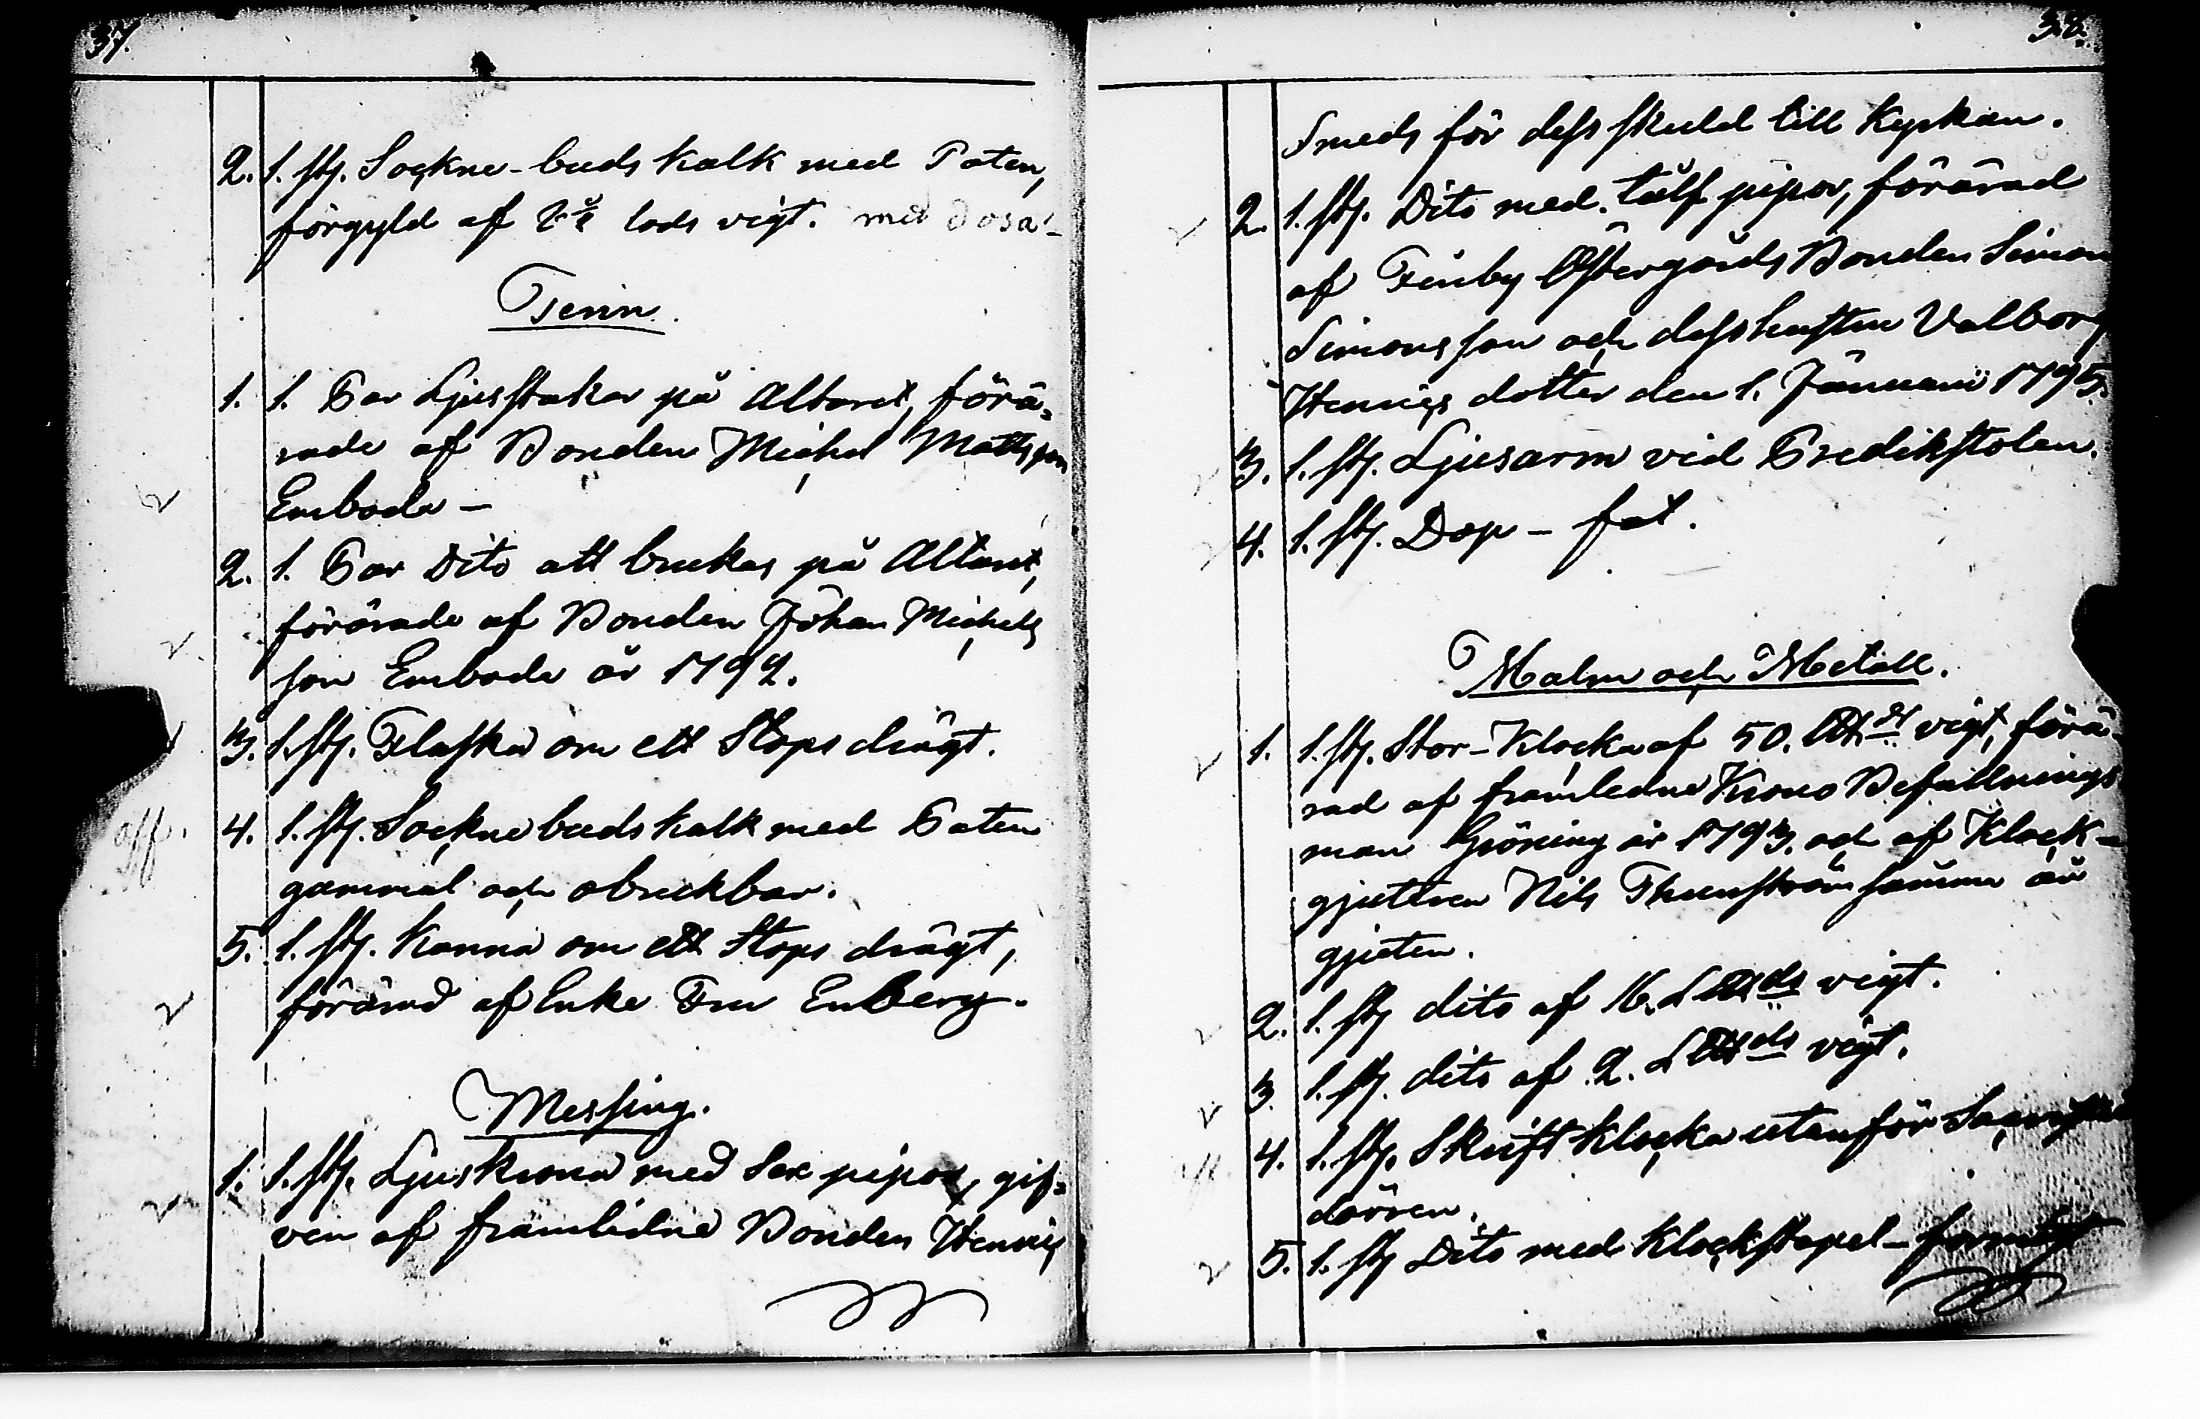 37.
2. 1. st. Sockne-buds kalk med Paten,
förgyld af lods vigt. med dosa
Tenn.
1. 1. Par Ljusstakar på Altaret, förä=
rade af Bonden Michel Mattsson
Emboda –
2. 1. Par Dito att brukas på Altaret,
förärade af Bonden Johan Michels
son Emboda år 1792.
3. 1. st. Flaska om ett Stops drägt.
off.
4. 1. st. Sockne buds kalk med Paten
gammal och obrukbar.
5. 1. st. Kanna om ett Stops drägt,
förärad af Enke Fru Enberg.
Messing.
1. 1. st. Ljuskrona med Sex pipor, gif=
ven af framlidne Bonden Hennig
38.
Smeds för dess skuld till Kyrkan.
2. 1. st. Dito med tålf pipor, förärad
af Finby Östergårds Bonden Simon
Simonsson och dess hustru Valborg
Hennigs dotter den 1. Januarii 1795.
3. 1. st. Ljusarm vid Predikstolen.
4. 1. st. Dop-fat.
Malm och Metall.
1. 1. st. Stor-Klocka af 50. vigt, förä-
rad af framledne Krono Befallnings
man Gröning år 1793. och af Klock-
gjuttren Nils Thunström samma år
gjuten.
2. 1. st dito af 16. L℔ds vigt.
3. 1. st. dito af 2. L℔ds vigt.
4. 1. st. Skrift klocka utanför Sacristie
dörren.
5. 1. st Dito med klockstapel-formigt